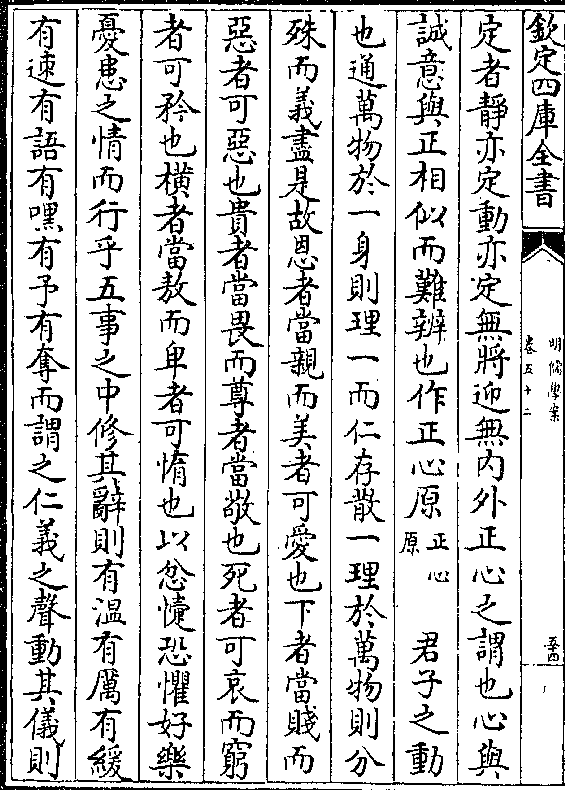 欽定四庫全書
明儒學案
卷五十二
五四
定者靜亦定動亦定無將迎無内外正心之謂也心與
誠意與正相似而難辨也作正心原
正心
原
君子之動
也通萬物於一身則理一而仁存散一理於萬物則分
殊而義盡是故恩者當親而美者可愛也下者當賤而
惡者可惡也貴者當畏而尊者當敬也死者可哀而窮
者可矜也橫者當敖而卑者可惰也以忿懥恐懼好樂
憂患之情而行乎五事之中修其辭則有溫有厲有緩
有速有語有嘿有予有奪而謂之仁義之聲動其儀則